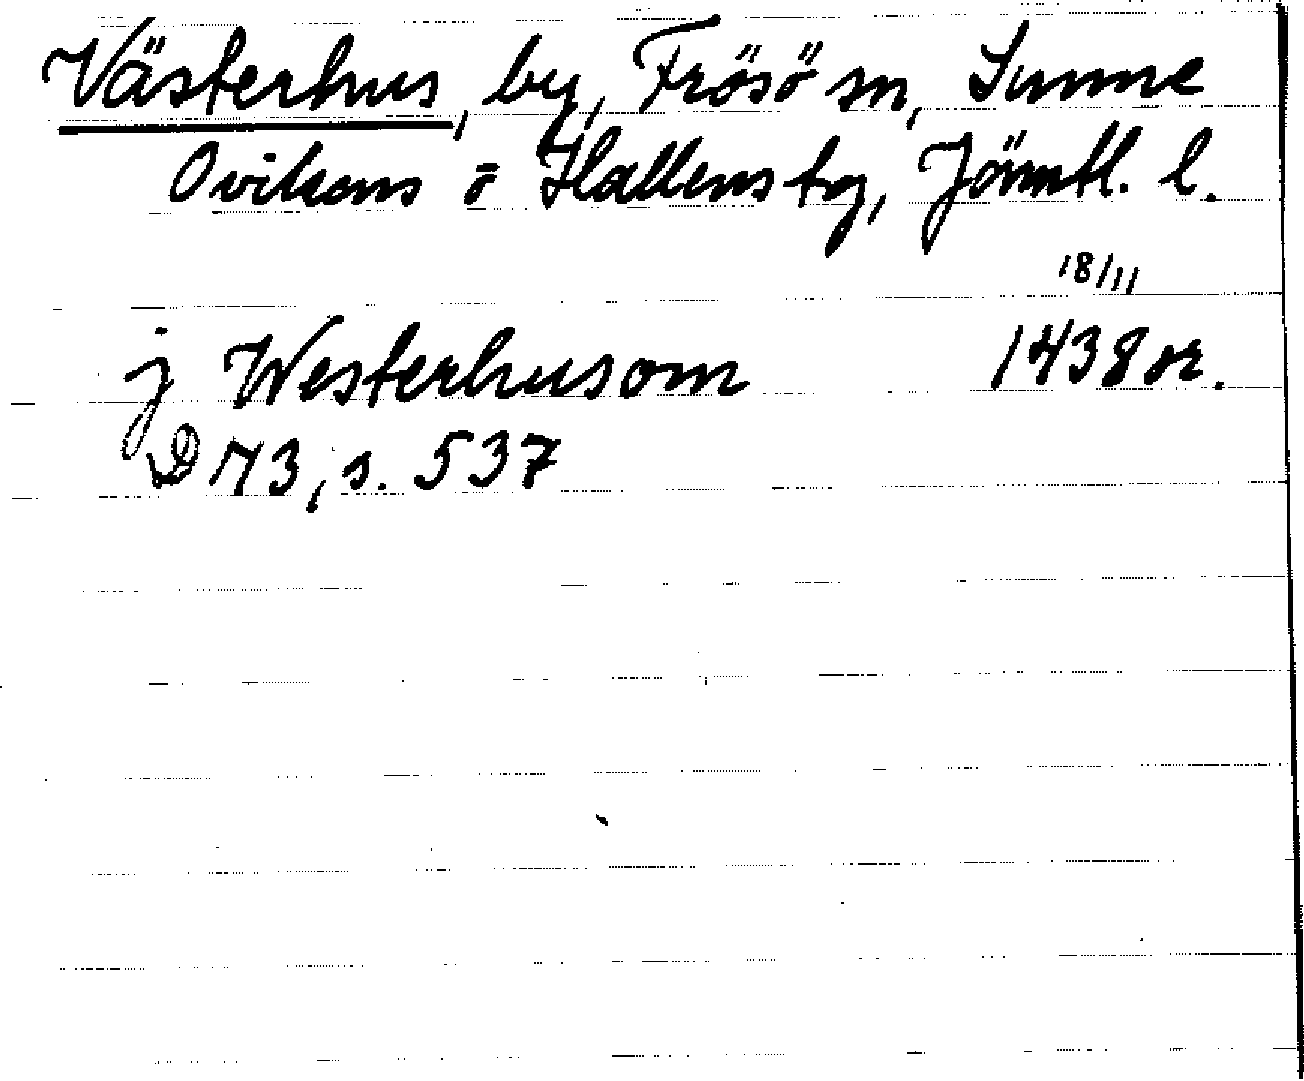 Västerhus, by, Frösö sn, Sunne
Ovikens o Hallens tg, Jämtl. l.
18/11
j Westerhusom 1438 or.
D 73, s. 537